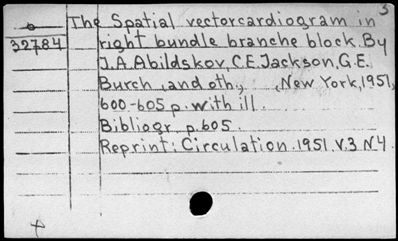 3
The Spatial vectorcardiogram in
32784 right bundle branche block. By
J.A. Abildskov, C.E. Jackson, G.E.
Burch, and oth., New York, 1951,
600-605 p. with ill.
Bibliogr. p. 605.
Reprint: Circulation. 1951. V.3 N.4.